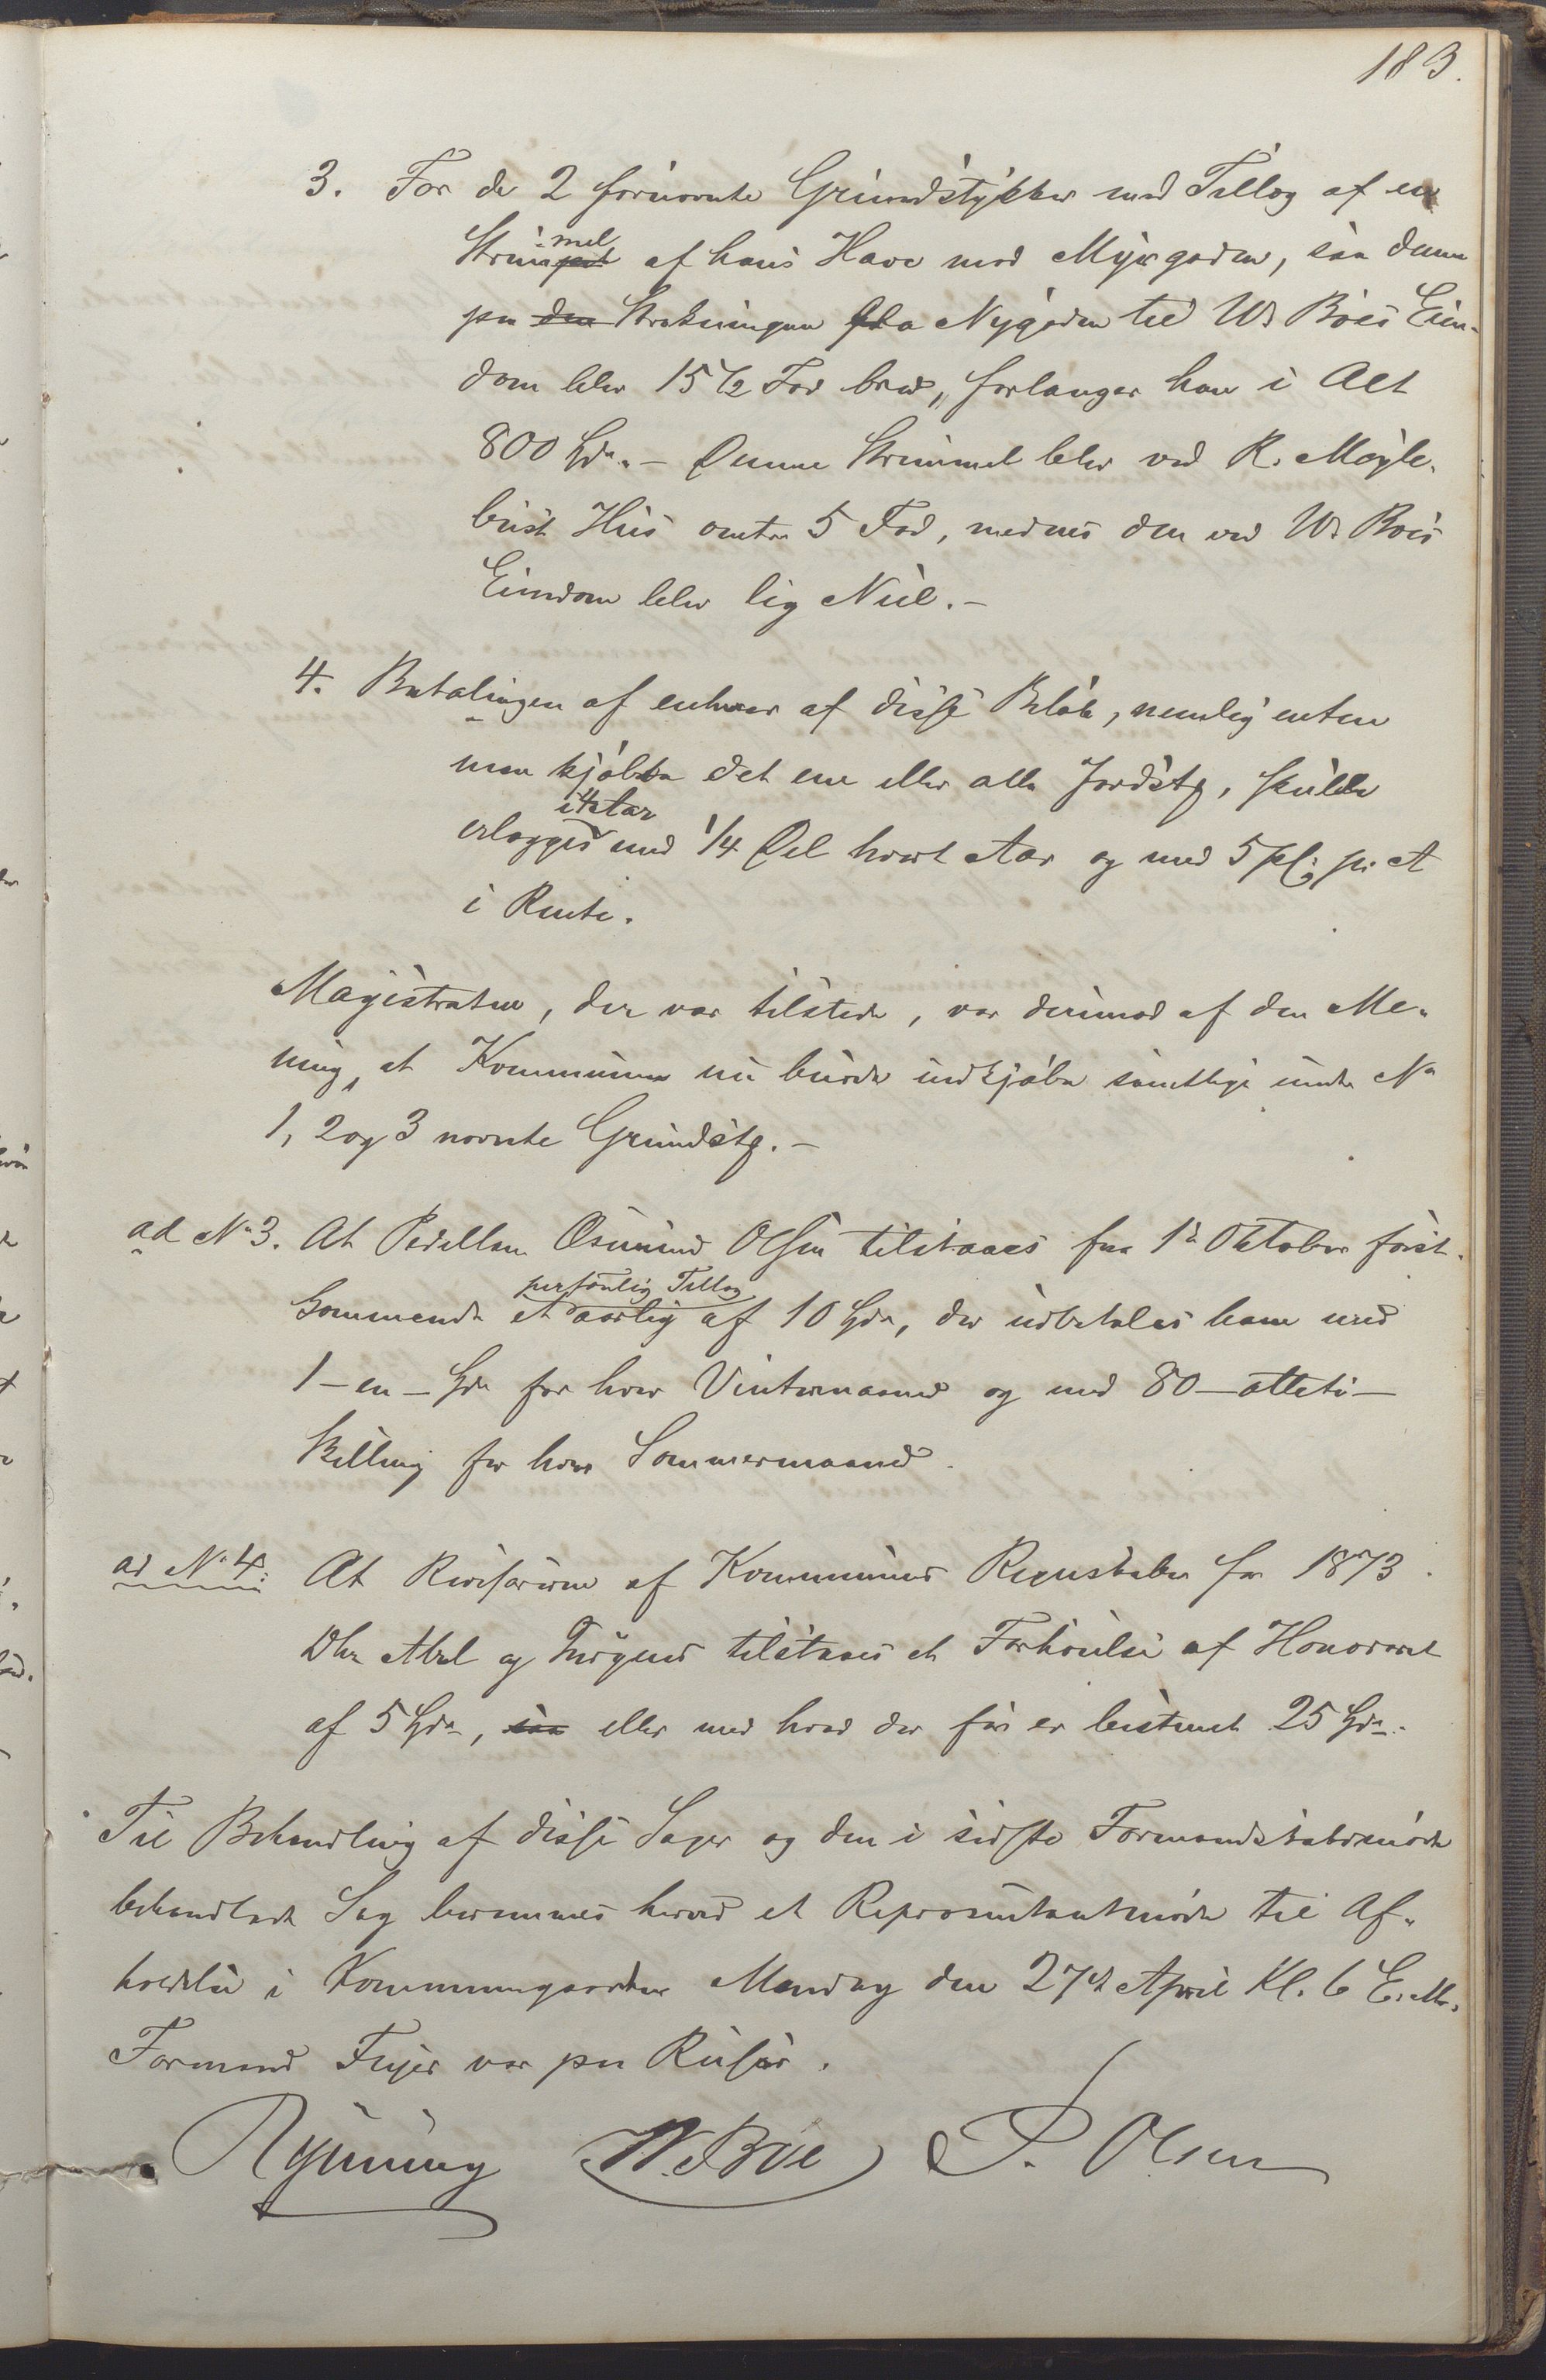 183.
3. For de 2 fornævnte Grundstykker med Tillæg af en
Strimmel af hans Have mod Myrgaden, saa denne
paa den Strækningen fra Nygaden til W. Bøes Eien-
dom blev 15 1/2 Fod bred, forlanger han i Alt
800 Spd. — Denne Strimmel blev ved R. Møgle-
bust Hus omtr 5 Fod, medens den ved W. Bøes
Eiendom blev lig Nul. —
4. Betalingen af enhver af disse Beløb, nemlig enten
man kjøbte det ene eller alle Jordstkr, skulde
erlægges i 4 Aar med 1/4 Del hvert Aar og med 5 pCt. pr. A
i Rente.
Magistraten, der var tilstede, var derimod af den Me-
ning, at Kommunen nu burde indkjøbe samtlige under No
1, 2 og 3 nævnte Grundstkr. —
ad No 3. At Pedellen Osmund Olsen tilstaaes fra 1ste Oktober først-
kommende et aarlig personlig Tillæg af 10 Spd, der udbetales ham med
1 – en – Spd for hver Vintermaaned og med 80 – otteti –
Skilling for hver Sommermaaned.
ad No 4: At Revisorerne af Kommunens Regnskaber for 1873
Dhr Abel og tilstaaes et Forhøielse af Honoraret
af 5 Spd, saa eller med hvad der før er bestemt 25 Spd.
Til Behandling af disse Sager og den i sidste Formandskabsmøde
behandlede Sag berammes herved et Repræsentantmøde til Af-
holdelse i Kommunegaarden Mandag den 27de April Kl. 6 E.M.
Formand Feyer var paa Reiser.
Rynning W. Bøe P. Olsen